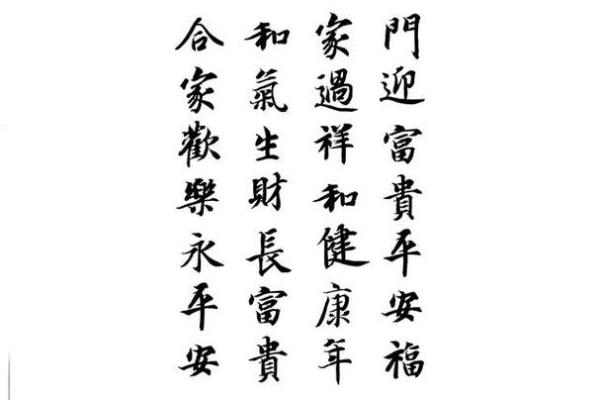 門迎富貴平安福
家過祥和健康年
和氣生財長富貴
合家歡樂永平安